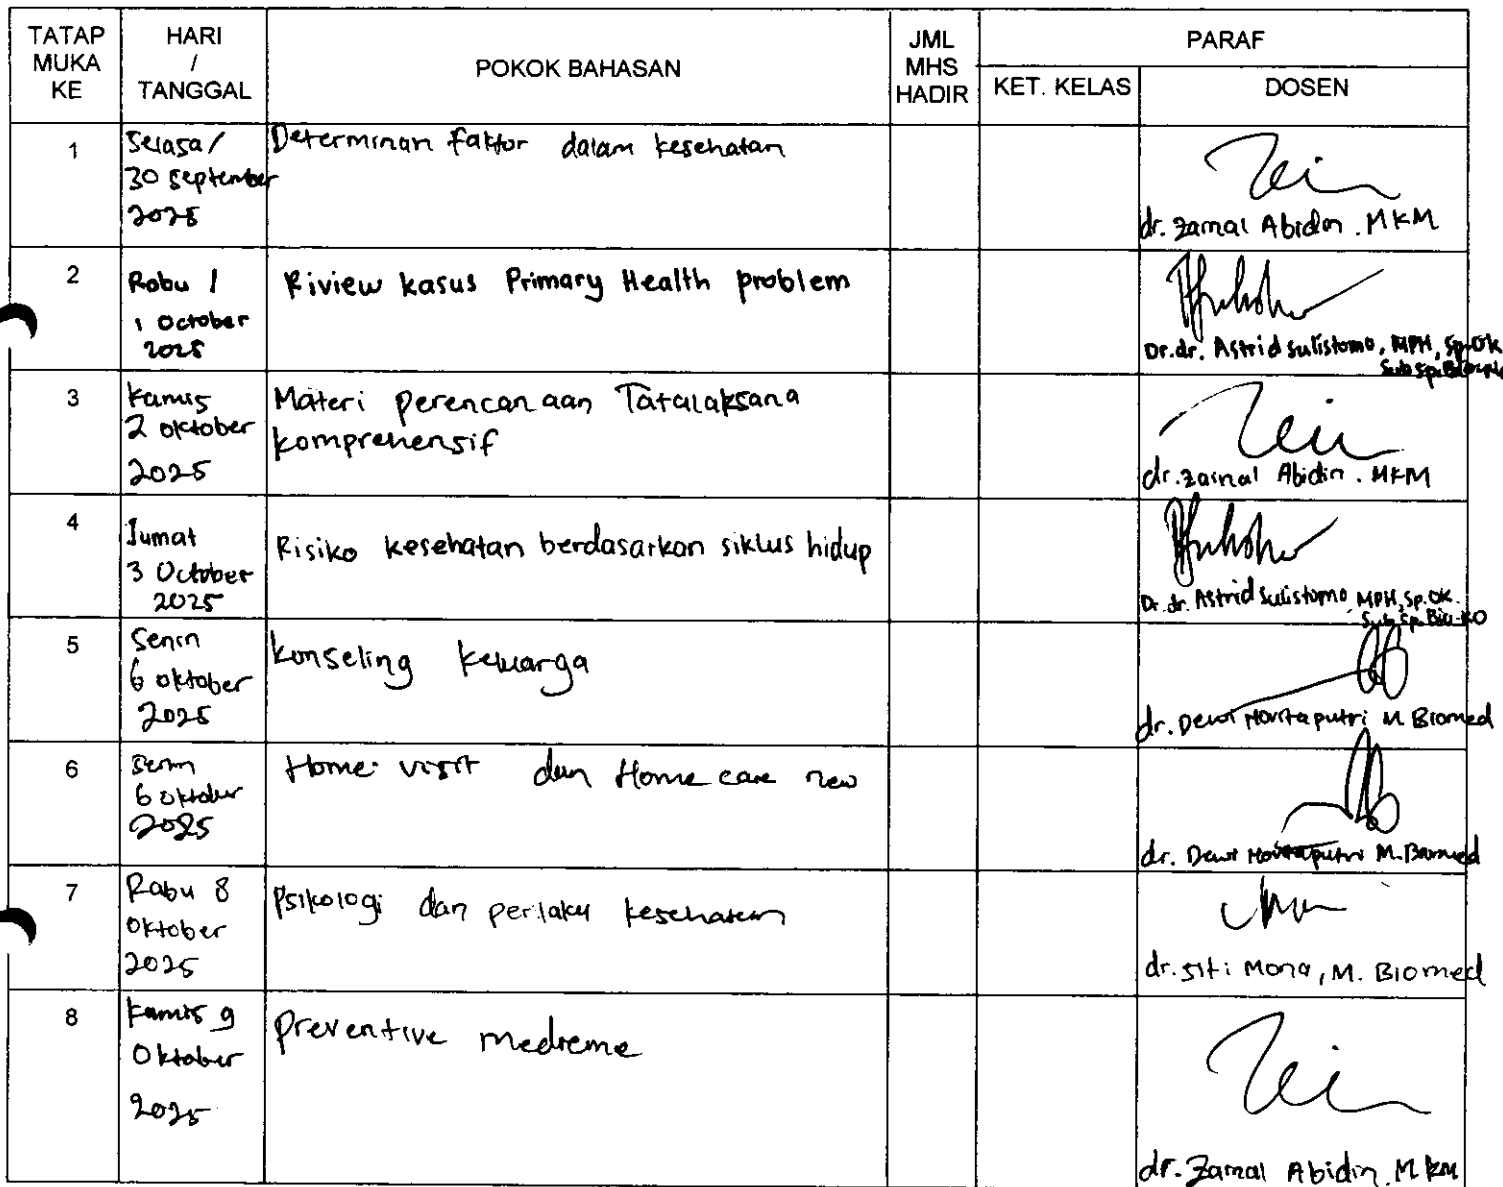 TATAP MUKA KE
HARI / TANGGAL
POKOK BAHASAN
JML MHS HADIR
PARAF
KET. KELAS
DOSEN
1
Selasa /
30 September
2025
Determinan faktor dalam kesehatan
dr. Zainal Abidin . MKM
2
Rabu /
1 October
2025
Riview kasus Primary Health problem
Dr. dr. Astrid Sulistomo, MPH, Sp.Ok
Sub Sp.
3
Kamis
2 Oktober
2025
Materi perencanaan Tatalaksana
komprehensif
dr. Zainal Abidin . MKM
4
Jumat
3 October
2025
Risiko kesehatan berdasarkan siklus hidup
Dr. dr. Astrid Sulistomo MPH, Sp.OK.
Sub Sp. Bio-KO
5
Senin
6 oktober
2025
konseling keluarga
dr. Dewi Novitaputri M Biomed
6
Senin
6 oktober
2025
Home visit dan Home care new
dr. Dewi Novitaputri M. Biomed
7
Rabu 8
Oktober
2025
Psikologi dan perilaku kesehatan
dr. Siti Mona, M. Biomed
8
Kamis 9
Oktober
2025
Preventive medicine
dr. Zainal Abidin. MKM